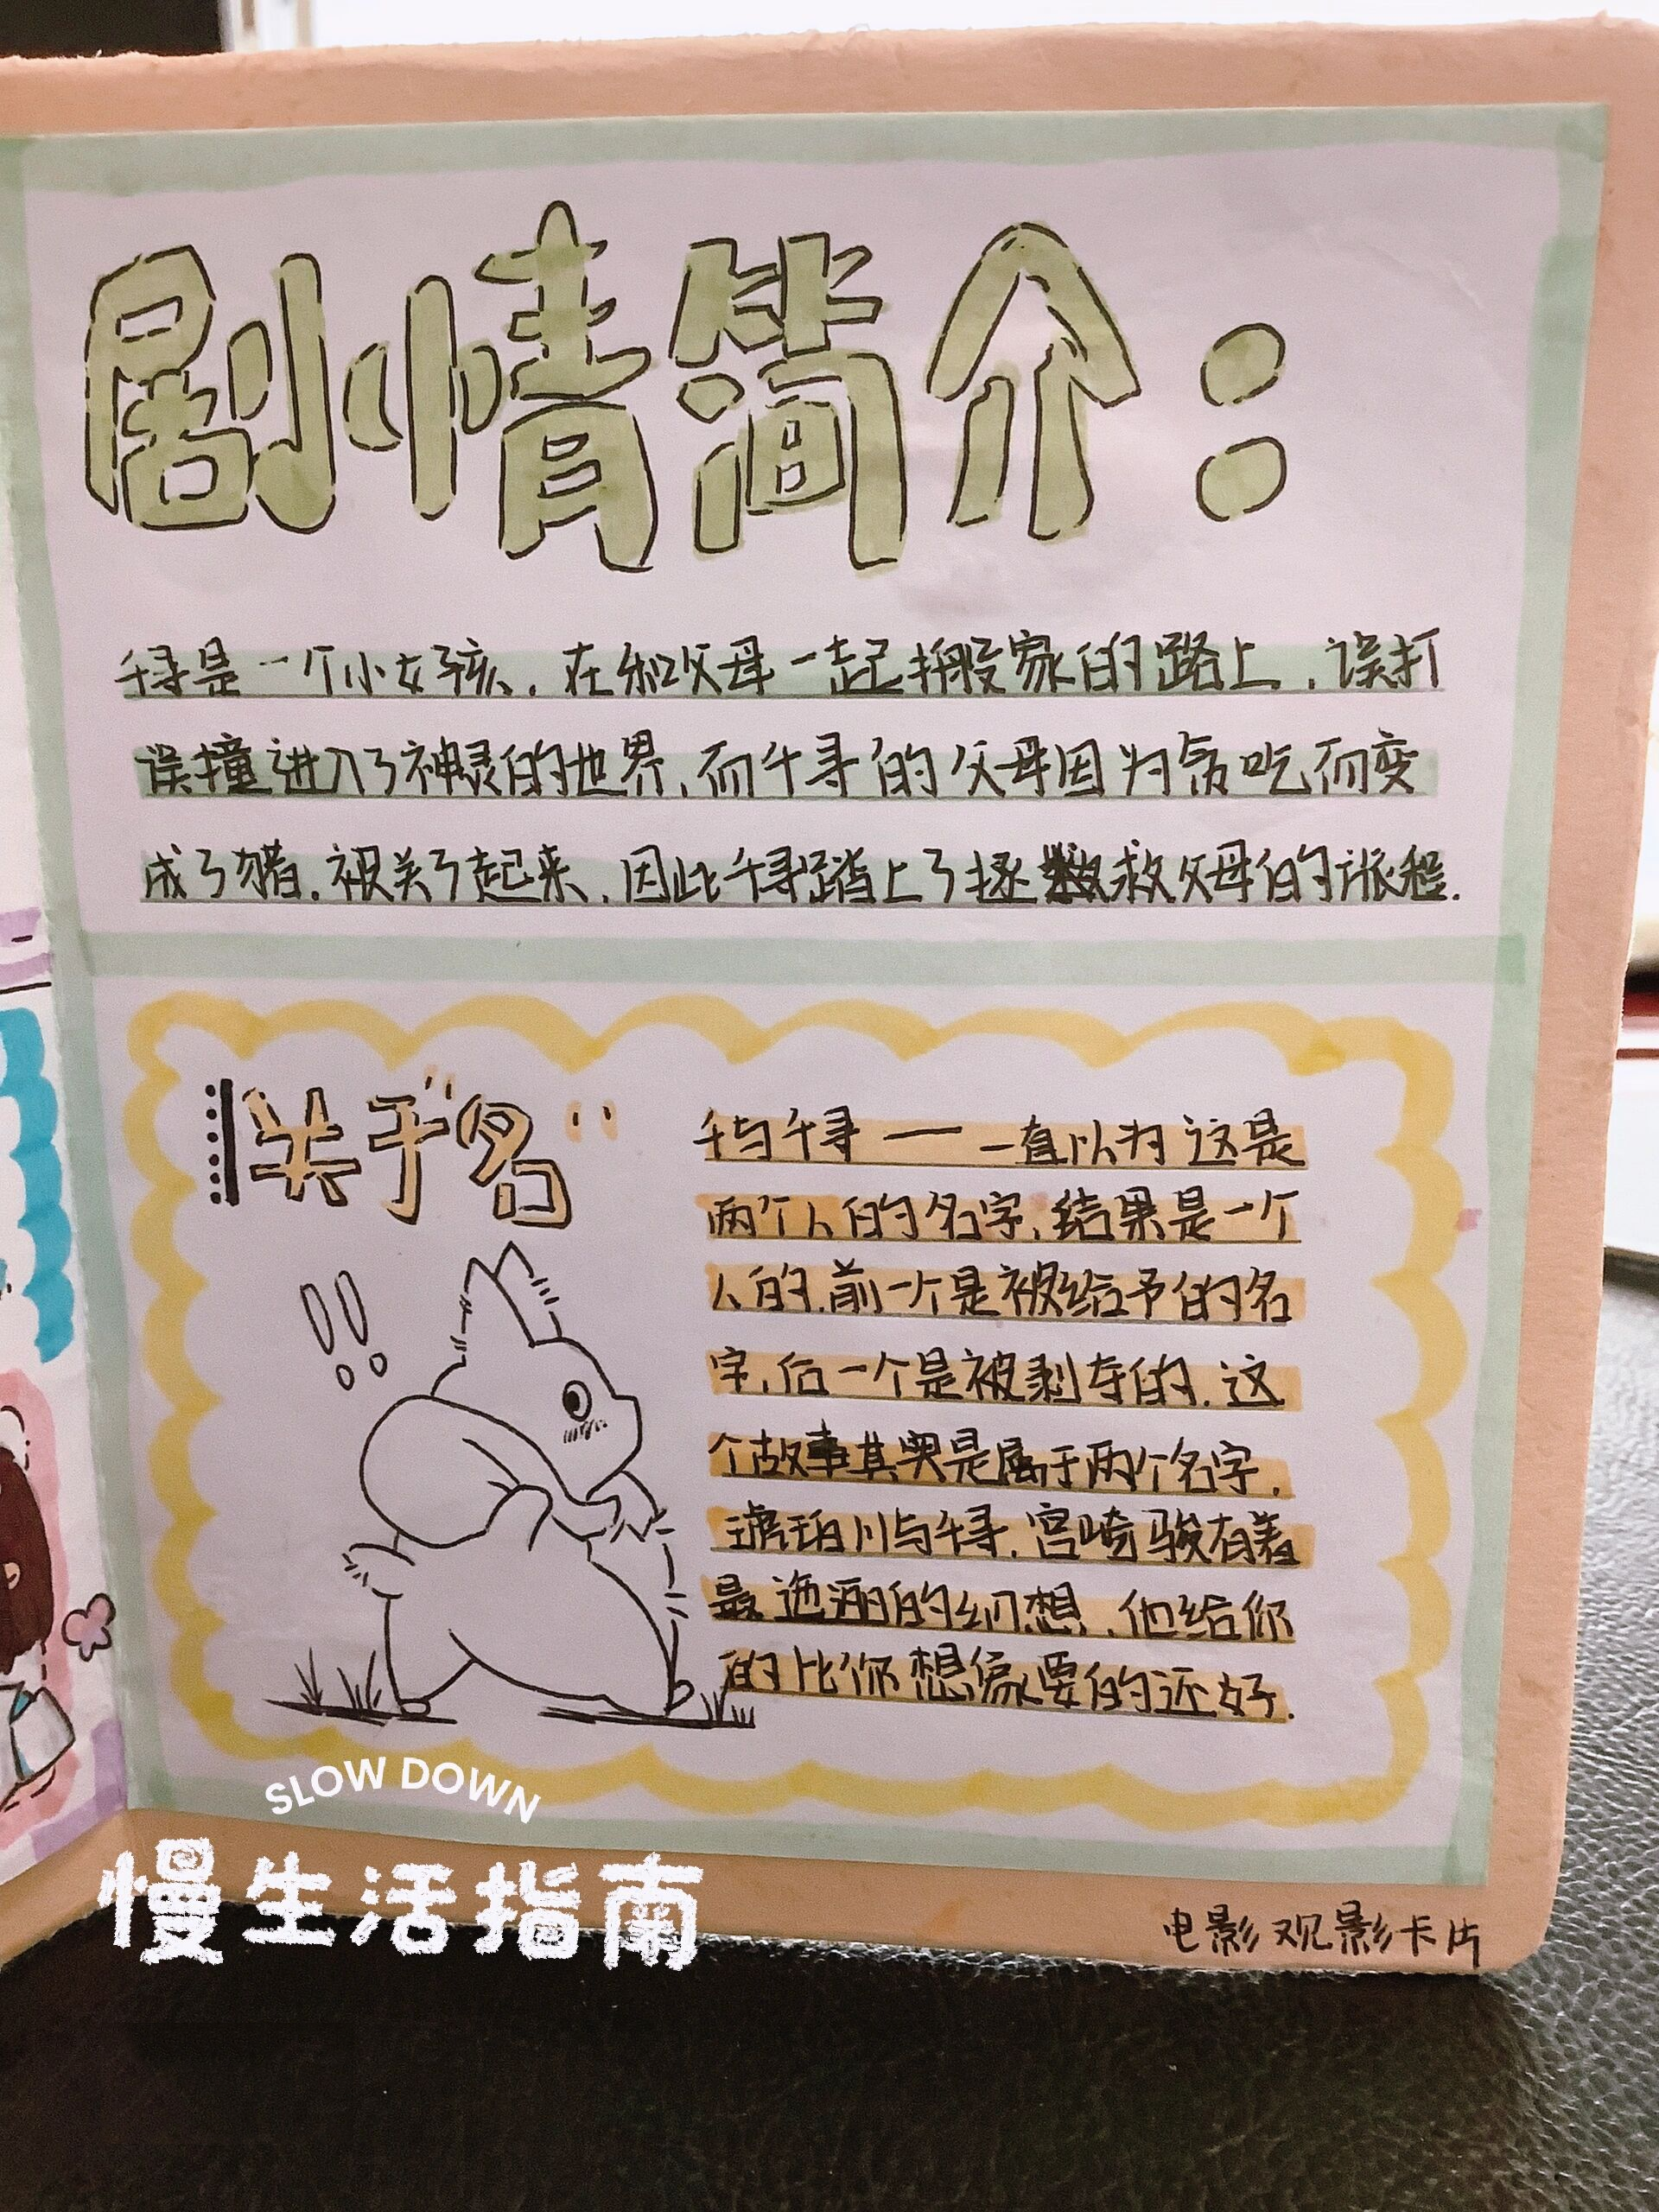 剧情简介：
千寻是一个小女孩，在和父母一起搬家的路上，误打
误撞进入了神灵的世界，而千寻的父母因为贪吃而变
成了猪，被关了起来，因此千寻踏上了拯救父母的旅程.
关于“名”
千与千寻——一直以为这是
两个人的名字，结果是一个
人的，前一个是被给予的名
字，后一个是被剥夺的，这
个故事其实是属于两个名字，
琥珀川与千寻，宫崎骏有着
最迤逦的幻想，他给你
的比你想像要的还好.
!!
SLOW DOWN
慢生活指南
电影观影卡片